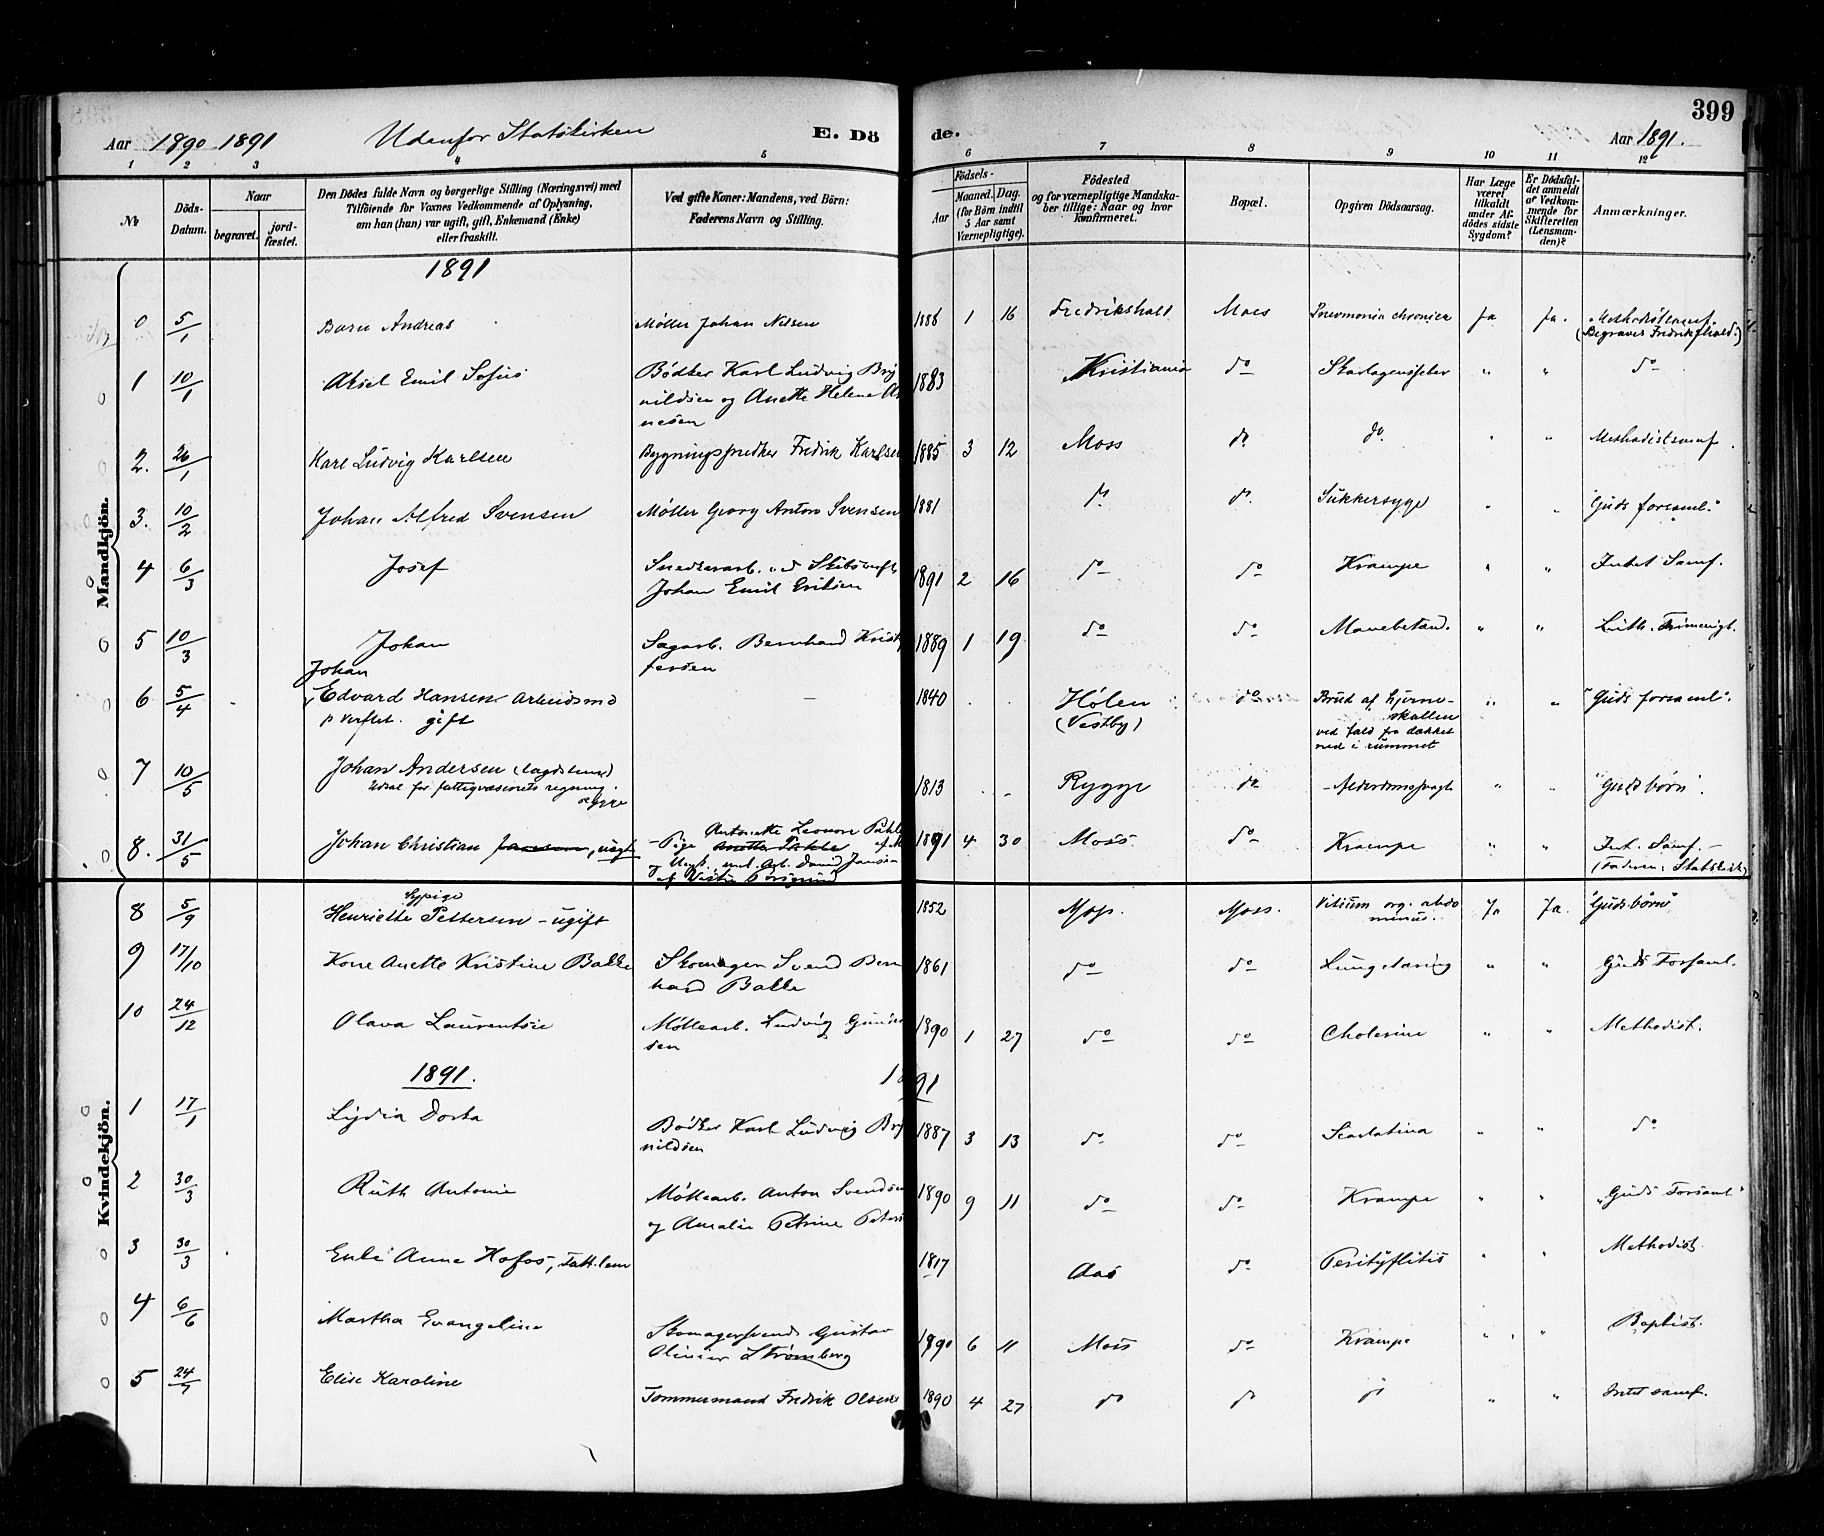 399
Aar 1890 1891 Udenfor Statskirken E. Dö de. Aar 1891.
1 2 3 4 5 6 7 8 9 10 11 12
No Döds-Datum. Naar begravet. jord-fæstet.
Den Dödes fulde Navn og borgerlige Stilling (Næringsvei) med
Tilföiende for Voxnes Vedkommende af Oplysning,
om han (hun) var ugift, gift, Enkemand (Enke)
eller fraskilt.
Ved gifte Koner: Mandens, ved Börn:
Faderens Navn og Stilling.
Födsels-
Aar Maaned. Dag.
(for Börn indtil
5 Aar samt
Værnepligtige).
Födested
og for værnepligtige Mandska-
ber tillige: Naar og hvor
Konfirmeret.
Bopæl.
Opgiven Dödsaarsag.
Har Læge
været
tilkaldt
under Af-
dödes sidste
Sygdom?
Er Dödsfal-
det anmeldt
af Vedkom-
mende for
Skifteretten
(Lensman-
den)?
Anmærkninger.
Mandkjön.
1891
0 5/1 Barn Andreas Møller Johan Nilsen 1886 1 16 Fredrikshald Moss Pneumonia chronica Ja Ja. Methodistsamf.
(Begraves Fredrikshald.)
1 10/1 Aksel Emil Sofus Bødker Karl Ludvig Bry 1883 Kristiania do Skarlagensfeber " " do
nildsen og Anette Helene
nesen
2. 26/1 Karl Ludvig Karlsen Bygningssnedker Fredrik Karlsen 1885 3 12 Moss do do " " Methodistsamf.
3. 10/2 Johan Alfred Svensen Møller Georg Anton Svensen 1881 do do Sukkersyge " " "Guds forsaml."
4 6/3 Josef Snedkerarb. Johan Emil Eriksen 1891 2 16 do do Krampe " " Intet Samf.
5 10/3 Johan Sagarb. Bernhard Krist 1889 1 19 do do Mavebetænd. " " Luth. Frimenigt.
fersen
Johan
6 5/4 Edvard Hansen Arbeidsmd — 1840 Hølen do Brud af hjerne- " " "Guds forsaml."
p Verftet. gift (Vestby) skallen
ved fald fra dækket
ned i rummet
7 10/5 Johan Andersen (lagdslem) 1813 Rygge do Alderdomssvagh " " "Guds børn".
Udsat for fattigvæsenets regning.
Rygge
8. 31/5 Johan Christian Jansen, uægt Pige Anette Pahle Antonette Leonore Pahle af M 1891 4 30 Moss do Krampe " " Int. Samf. —
og Ungk. Arb. David Jansen (Faderen: Statskirk)
af Vestre Porsgrund
Kvindekjön.
8 5/9 Sypige
Henriette Pettersen - ugift 1852 Moss. Moss. Vitium org. abdo Ja Ja. "Guds børn"
minus.
9 17/10 Kone Anette Kristine Bakke Skomager Svend Bern 1861 do do Lungetæring " " Guds Forsaml.
hard Bakke
10 24/12 Olava Laurentsie Møllearb. Ludvig Gun 1890 1 27 do do Cholerine " " Methodist.
sen
1891. 1891
1 17/1 Lydia Dorta Bødker Karl Ludvig Bry 1887 3 13 do do Scarlatina " " do
nildsen
2 30/3 Ruth Antonie Møllearb. Anton Svendsen 1890 9 11 do do Krampe " " "Guds Forsaml."
og Amalie Petrine Peters
3 30/3 Enke Anne Hofos, Fatt.lem 1817 Aas do Perityflitis " " Methodist.
4 6/6 Martha Evangeline Skomagersvend Gustav 1890 6 11 Moss do Krampe " " Baptist.
Olivier Strømberg
5 24/7 Elise Karoline Tømmermand Fredrik Olsen 1890 4 27 do do do " " Intet samf.